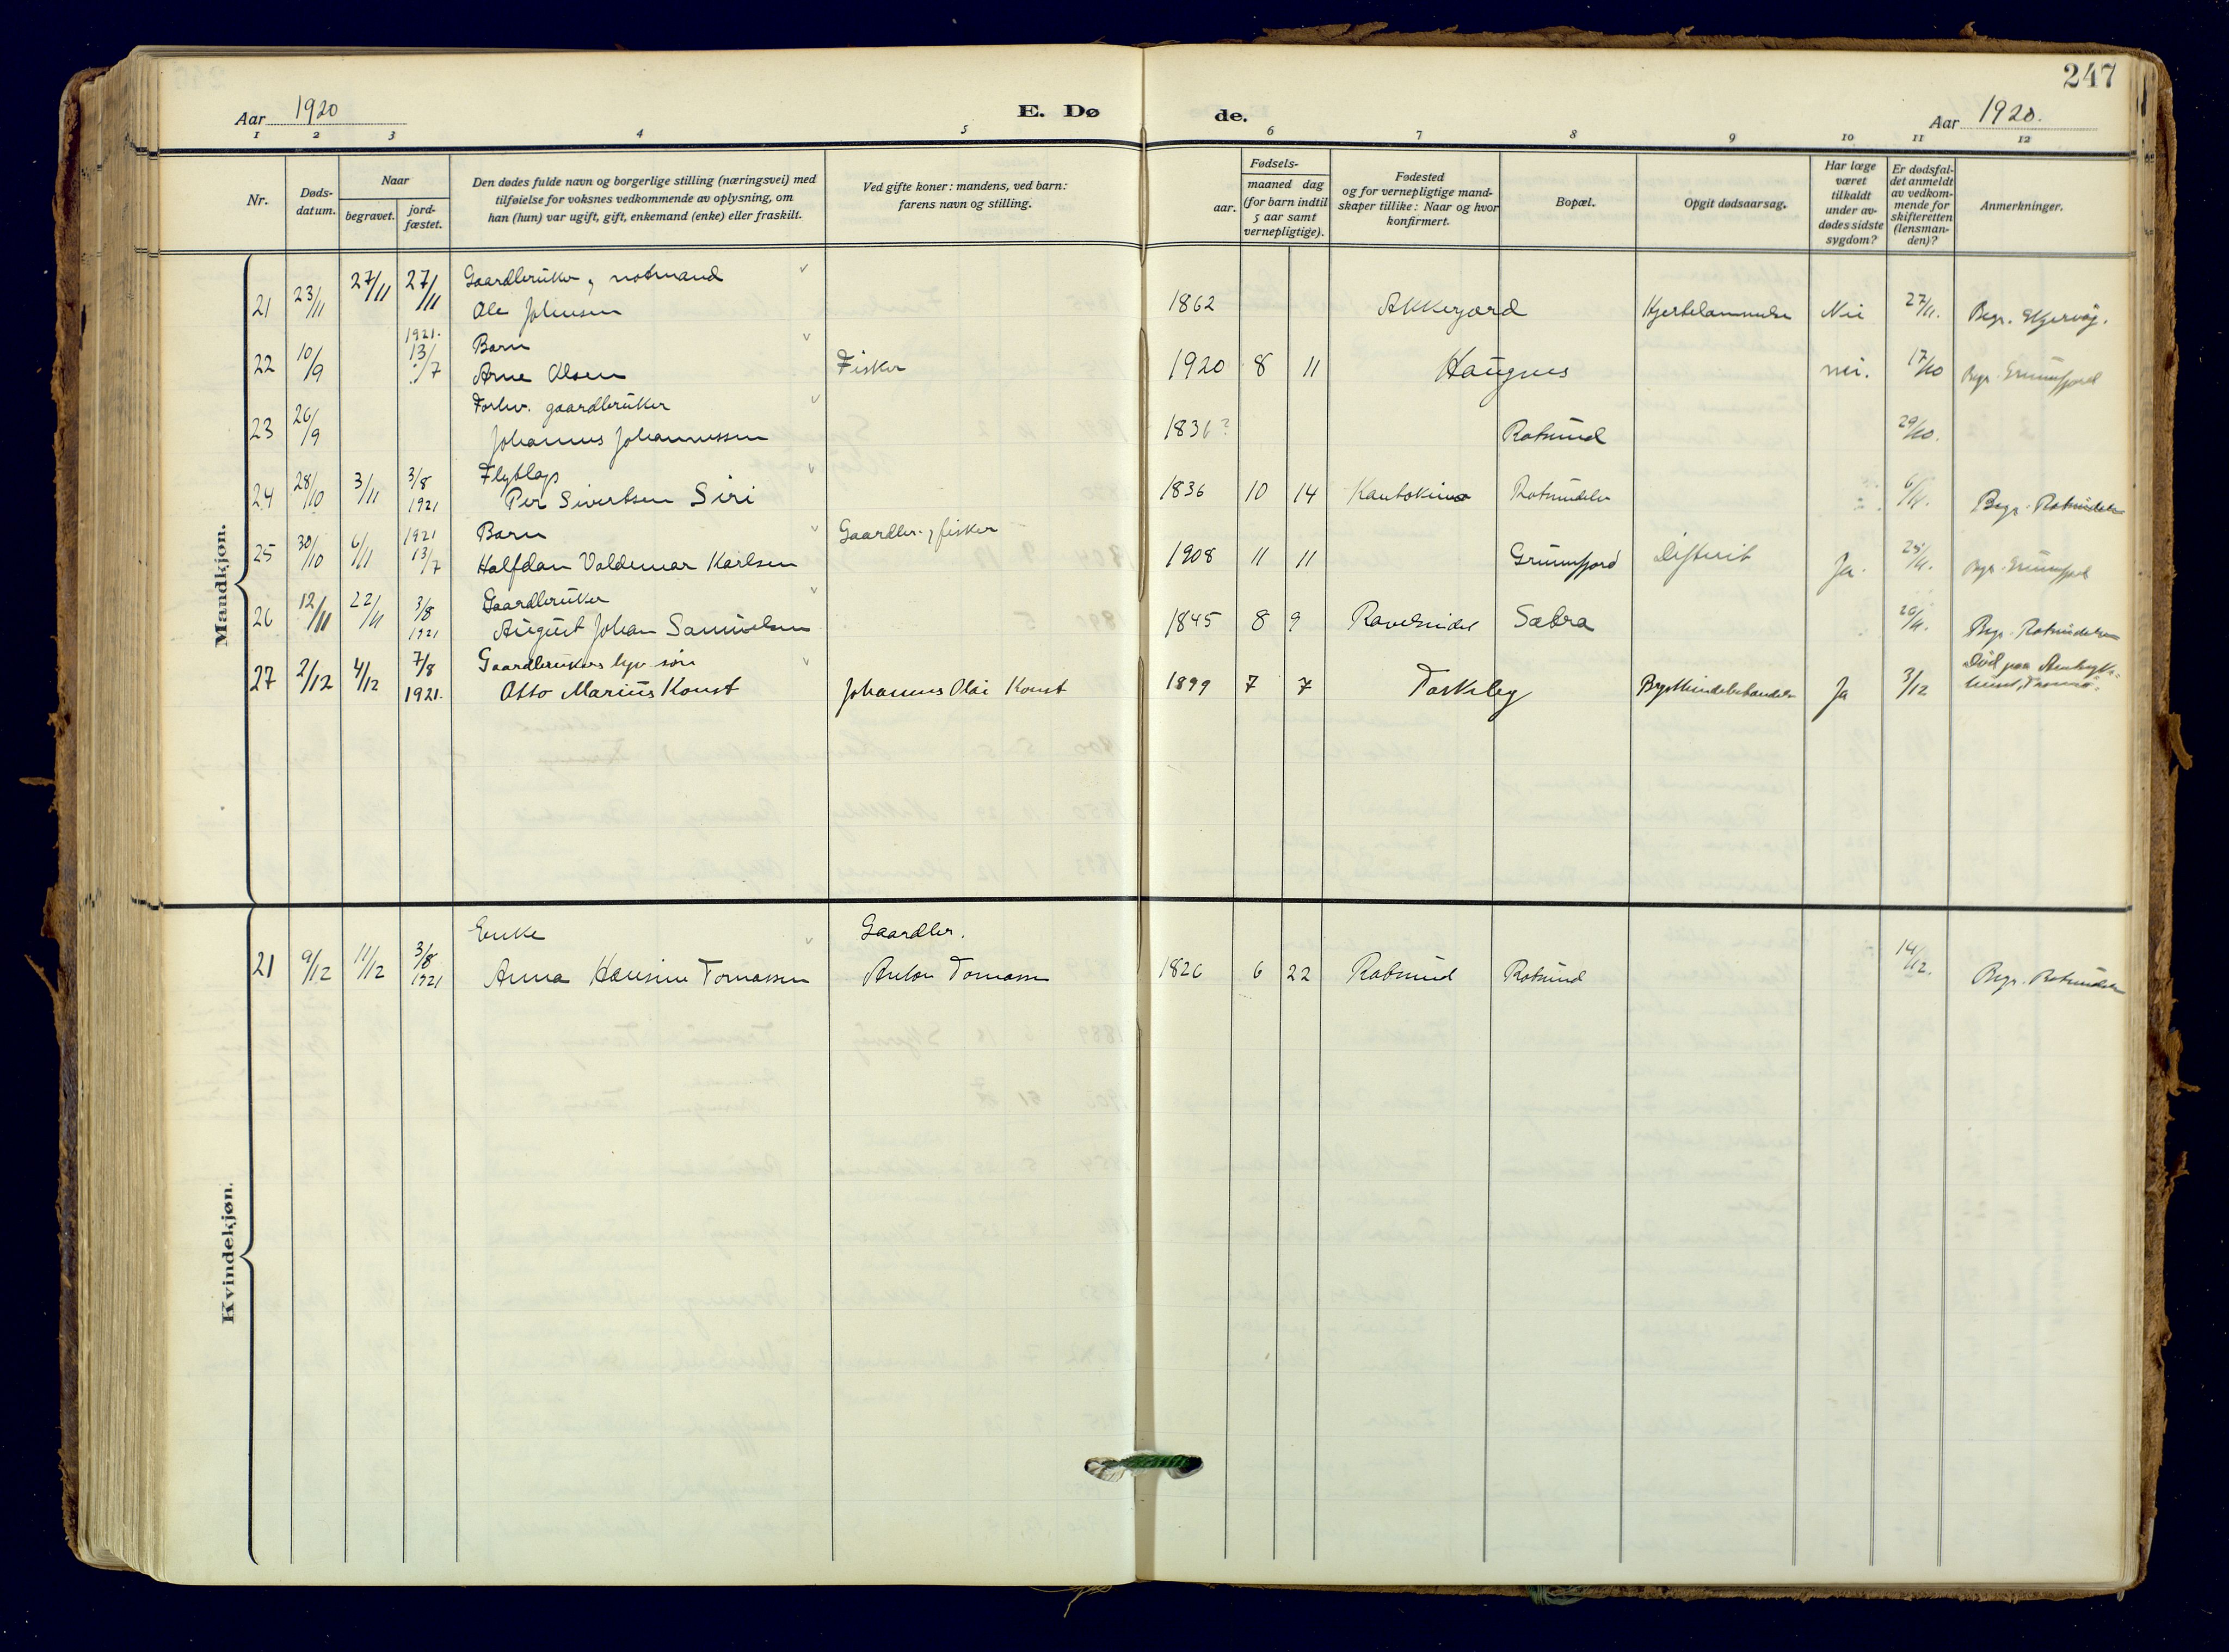 247
Aar 1920
E. Dø
de.
Aar 1920.
1 2 3 4 5 6 7 8 9 10 11 12
Nr.
Døds-
datum.
Naar
begravet.
jord-
fæstet.
Den dødes fulde navn og borgerlige stilling (næringsvei) med
tilføielse for voksnes vedkommende av oplysning, om
han (hun) var ugift, gift, enkemand (enke) eller fraskilt.
Ved gifte koner: mandens, ved barn:
farens navn og stilling.
Fødsels-
aar.
maaned dag
(for barn indtil
5 aar samt
vernepligtige).
Fødested
og for vernepligtige mand-
skaper tillike: Naar og hvor
konfirmert.
Bopæl.
Opgit dødsaarsag.
Har læge
været
tilkaldt
under av-
dødes sidste
sygdom?
Er dødsfal-
det anmeldt
av vedkom-
mende for
skifteretten
(lensman-
den)?
Anmerkninger.
Mandkjøn.
Gaardbruker, notmand
21 23/11 27/11 27/11 Ole Johnsen 1862 Akkerjord Hjertelammelse Nei 27/11. Begr. Skjervøy.
1921. Barn
22 10/9 13/7 Arne Olsen Fisker 1920 8 11 Haugnes nei. 17/10 Begr. Grunnfjord
Forhv. gaardbruker
23 26/9 Johannes Johannessen 1831? Rotsund 29/10.
Flytlap
24 28/10 3/11 3/8 1921 Per Sivertsen Siri 1836 10 14 Kautokino Rotsundelv 6/11. Begr. Rotsundelv
1921 Barn Gaardbr., fisker
25 30/10 6/11 13/7 Halfdan Valdemar Karlsen 1908 11 11 Grunnfjord Difterit Ja. 25/11. Begr. Grunnfjord
Gaardbruker
26 12/11 22/11 3/8 1921 August Johan Samuelsen 1845 8 9 Ravelseidet Sætra 20/11. Begr. Rotsundelven
Gaardbrukers søn Død paa
27 2/12 4/12 7/8 1921. Otto Marius Konst Johannes Olai Konst 1899 7 7 Taskeby Ja 3/12 Tromsø.
Kvindekjøn.
Enke Gaardbr.
21 9/12 11/12 3/8 1921 Anna Hansine Tomassen Anton Tomassen 1826 6 22 Rotsund Rotsund 14/12. Begr. Rotsundelv